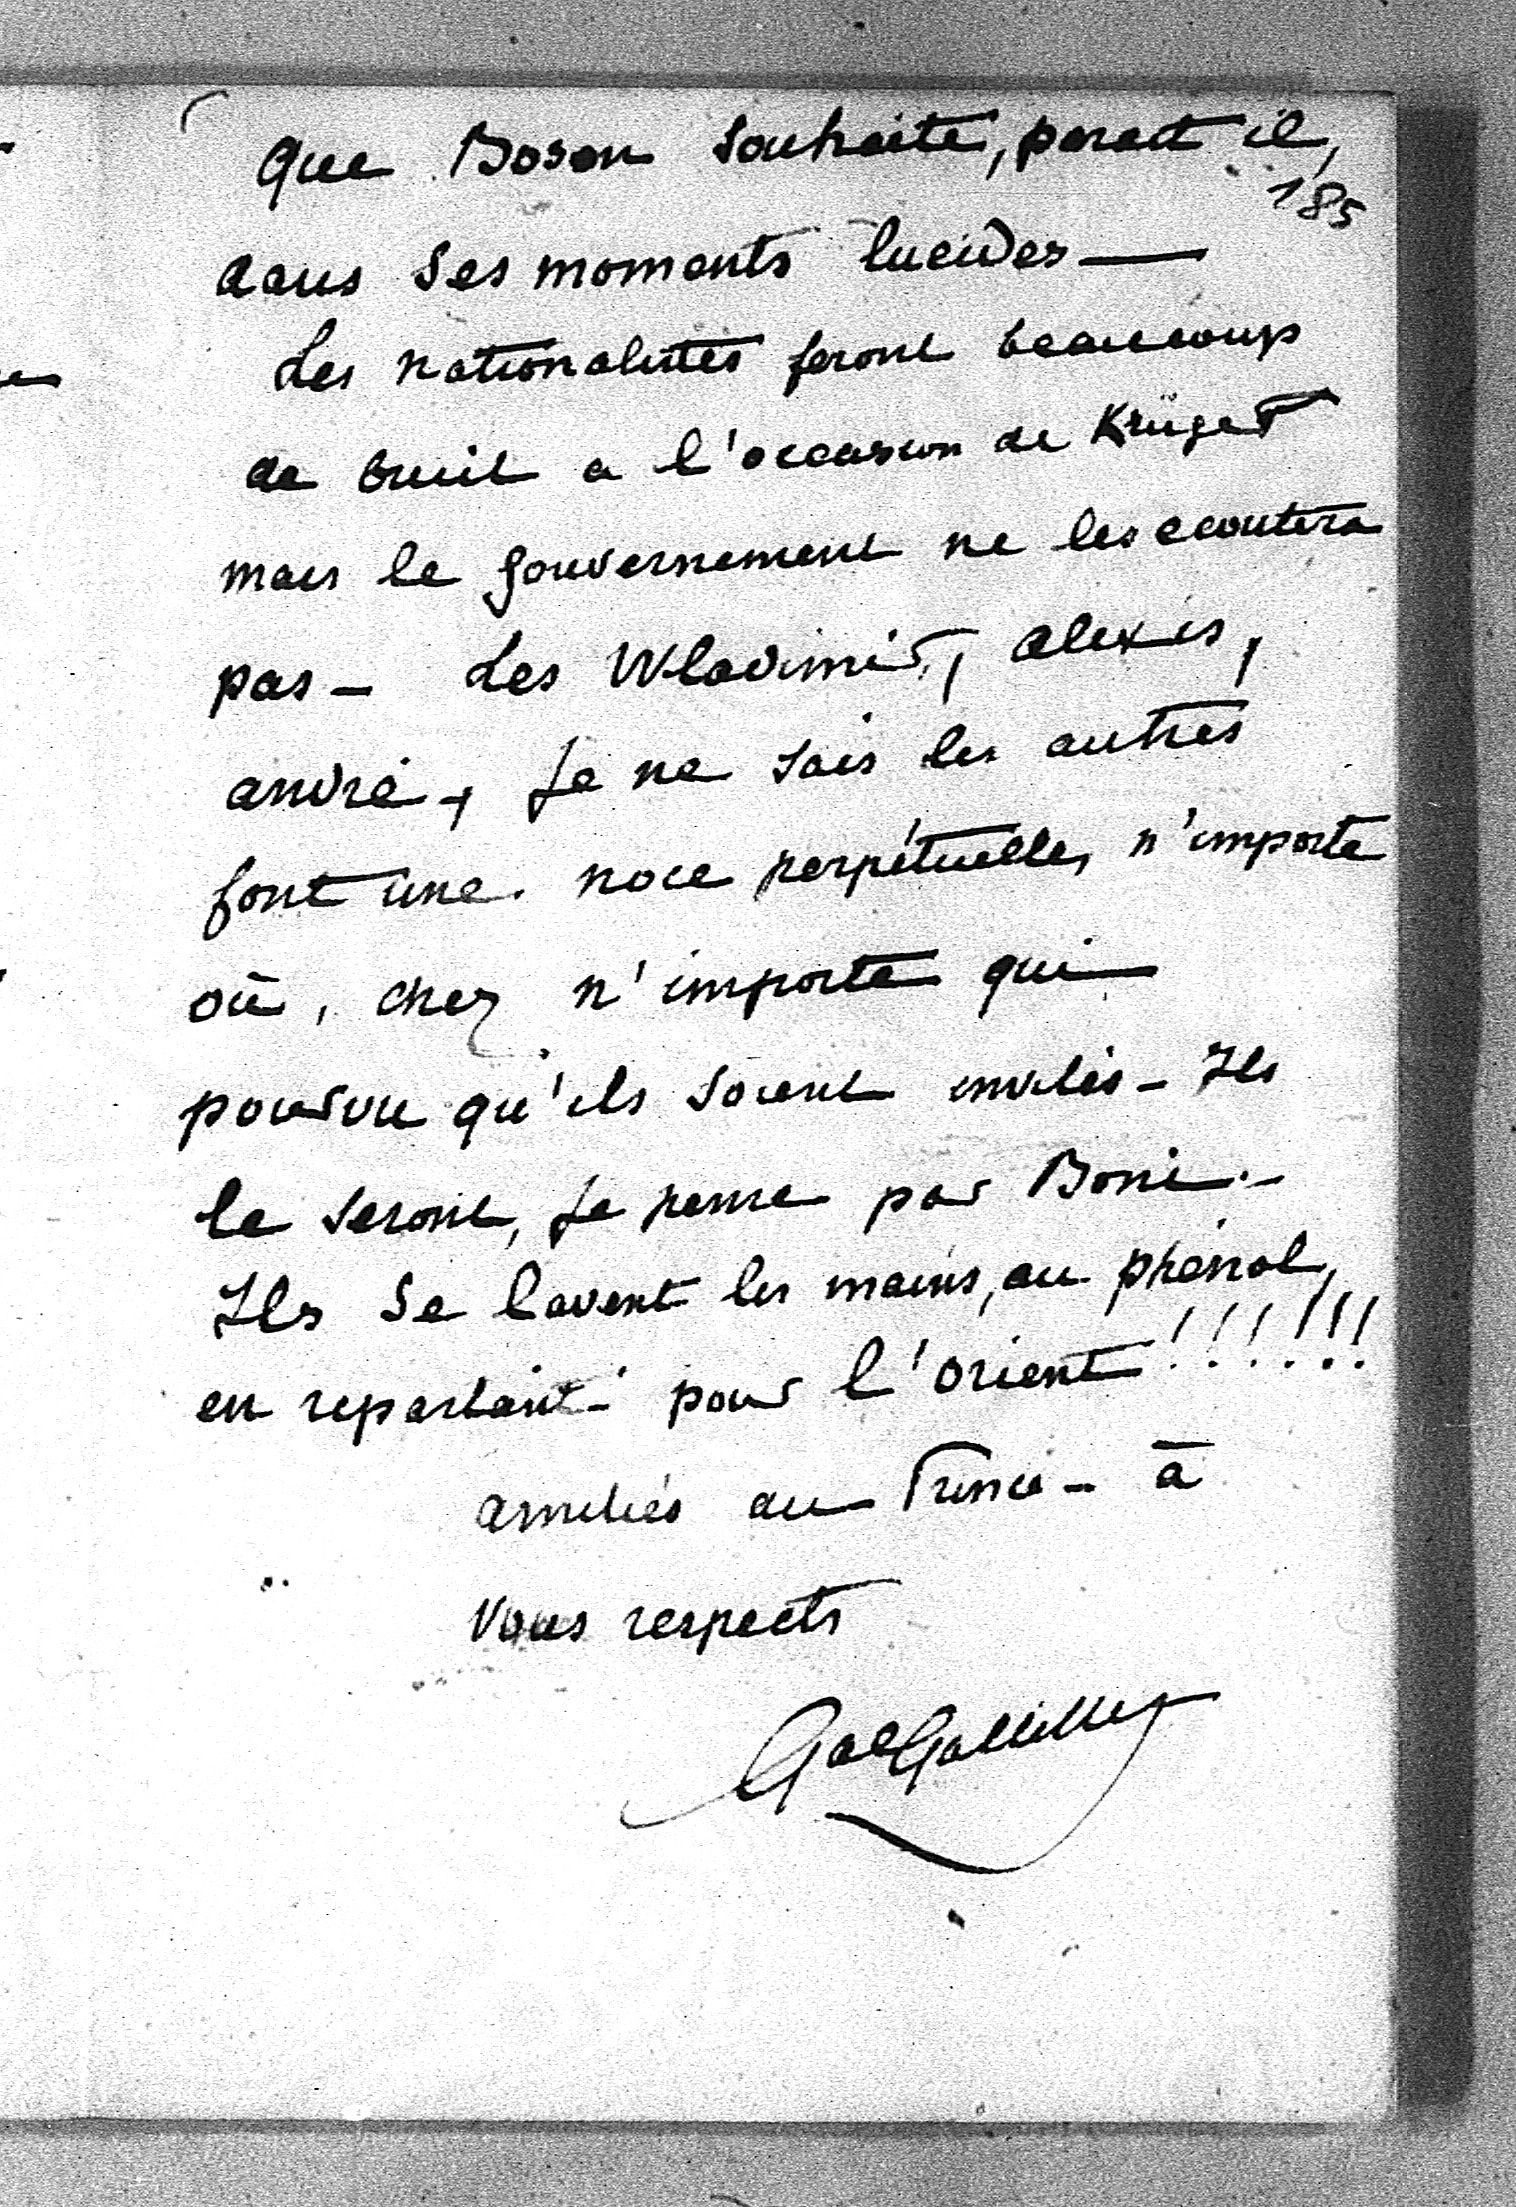 que Boson souhaite, parait il,
185
dans ses moments lucides —
Les nationalistes feront beaucoup
de bruit a l'occasion de Krüger
mais le gouvernement ne les ecoutera
pas — Les Wladimir, alexis,
andré, je ne sais les autres
font une noce perpétuelle, n'importe
où, chez n'importe qui
pourvu qu'ils soient invités — Ils
le seront, je pense par Boni —
Ils se lavent les mains, au phénol,
en repartant pour l'orient !!!!!!
amitiés au Prince — à
vous respects
Gal Galliffet